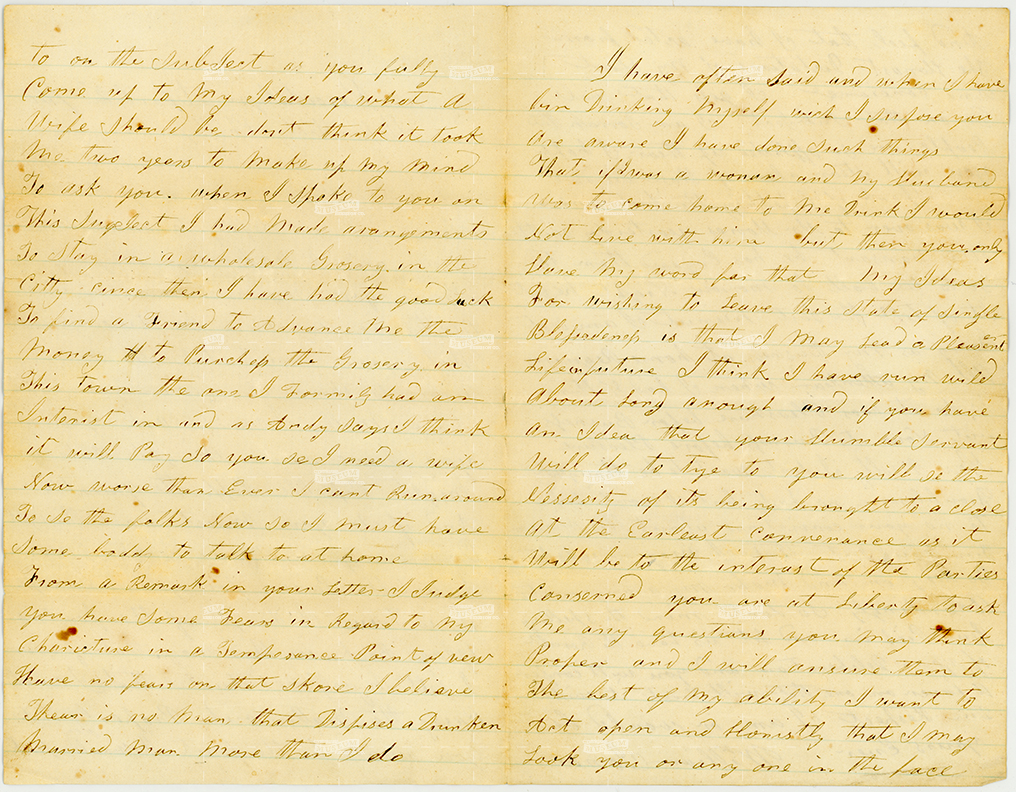 to on the Subject as you fully
Come up to My Ideas of what A
Wife should be dont think it took
Me two years to Make up My Mind
To ask you. when I spoke to you on
This Subject I had Made arangements
To Stay in a wholesale Grosery in the
Citty since then I have had the good luck
To find a Friend to Advance Me the
Money to Purchess the Grosery in
This town the one I Formily had an
Interist in and as Andy says I think
it will Pay So you se I need a wife
Now worse than Ever I cant Run around
To se the folks Now so I must have
Some bodd to talk to at home
From a Remark in your letter I Judge
you have Some Fears in Regard to My
Charicture in a Temperance Point of vew
Have no fears on that skore I believe
Thear is no Man that Dispises a Drunken
Married Man More than I do
I have often said and when I have
bin Drinking Myself wich I supose you
Are aware I have done Such things
That if I was a woman and My Husband
Was to come home to Me Drink I would
Not live with him but then you only
Have My word for that My Ideas
For wishing to Leave this State of Single
Blessedness is that I May Lead a Pleasent
Life in future I think I have run wild
About Long anough and if you have
An Idea that your Humble Servant
Will do to tye to you will se the
Nessesity of its being brought to a close
At the Earleast Convenance as it
Will be to the interast of the Parties
Conserned you are at Liberty to ask
Me any questions you May think
Proper and I will ansure them to
The best of My ability I want to
Act open and Honistly that I may
Look you or any one in the face